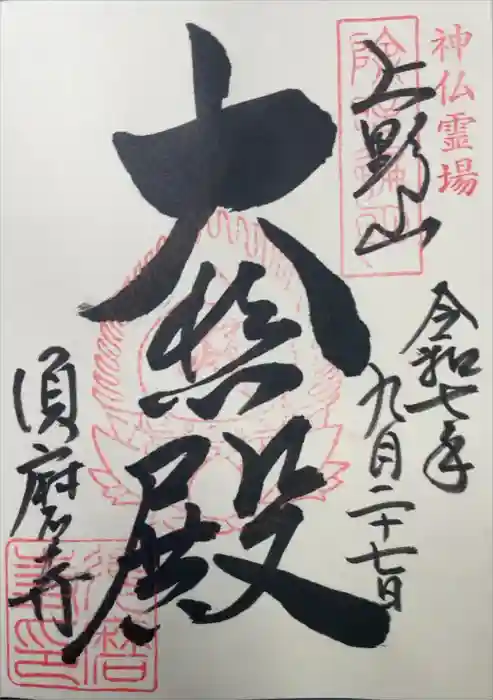 神仏霊場
上野山
令和七年
九月二十七日
大悲殿
須磨寺